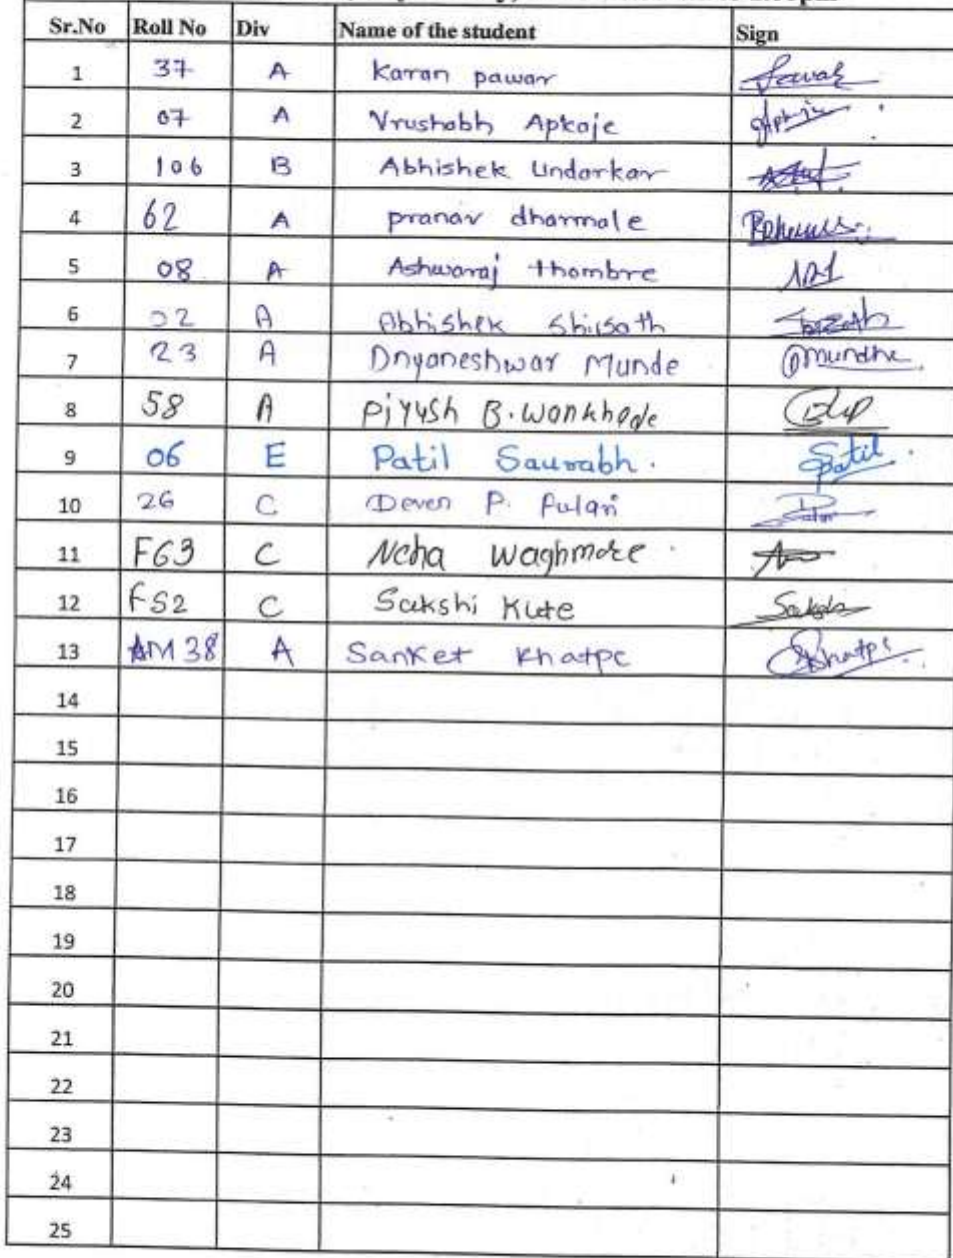 Sr.No Roll No Div Name of the student Sign
1 37 A Karan pawar
2 07 A Vrushabh Apkaje
3 106 B Abhishek Undarkar
4 62 A pranav dharmale
5 08 A Ashwaraj thombre
6 02 A Abhishek Shirsath
7 23 A Dnyaneshwar Munde Dmundhe
8 58 A Piyush B. Wankhade
9 06 E Patil Saurabh. Spatil
10 26 C Deven P. Pulari
11 F63 C Neha Waghmare
12 FS2 C Sakshi Kute Sakshi
13 AM 38 A Sanket Khatpe SKhatpe
14
15
16
17
18
19
20
21
22
23
24
25